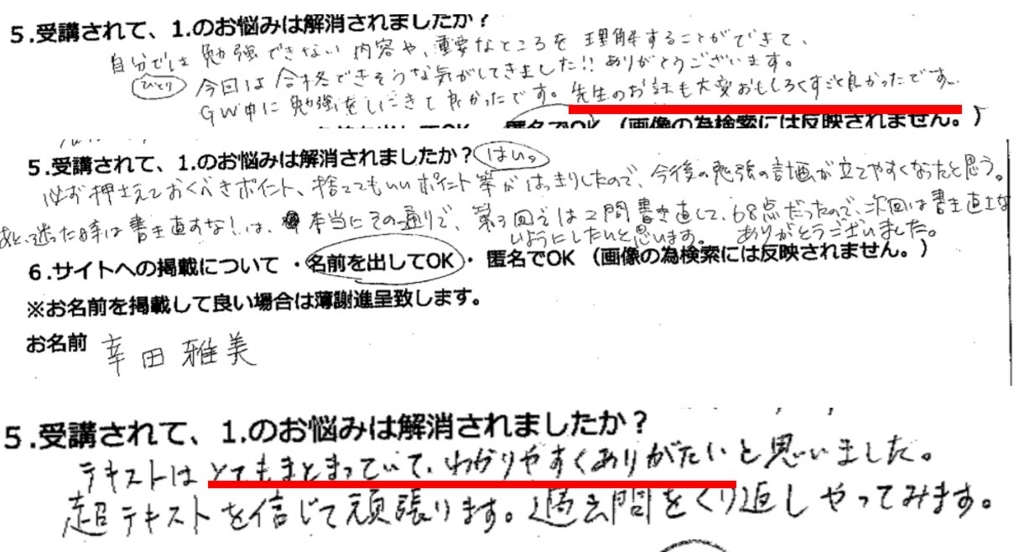 5.受講されて、1.のお悩みは解消されましたか？
自分では勉強できない内容や、重要なところを理解することができて、
ひとり 今回は合格できそうな気がしてきました!! ありがとうございます。
GW中に勉強をしにきて良かったです。先生のお話も大変おもしろくすごく良かったです。
名前を出してOK 匿名でOK （画像の為検索には反映されません。）
5.受講されて、1.のお悩みは解消されましたか？ はい。
必ず押さえておくべきポイント、捨ててもいいポイント等がはっきりしたので、今後の勉強の計画が立てやすくなったと思う。
あと、迷った時は書き直すな！は、本当にその通りで、第3回は2問書き直して、68点だったので、次回は書き直さな
いようにしたいと思います。 ありがとうございました。
6.サイトへの掲載について ・名前を出してOK ・ 匿名でOK （画像の為検索には反映されません。）
※お名前を掲載して良い場合は薄謝進呈致します。
お名前 幸田 雅美
5.受講されて、1.のお悩みは解消されましたか？
テキストはとてもまとまっていて、わかりやすくありがたいと思いました。
超テキストを信じて頑張ります。過去問をくり返しやってみます。